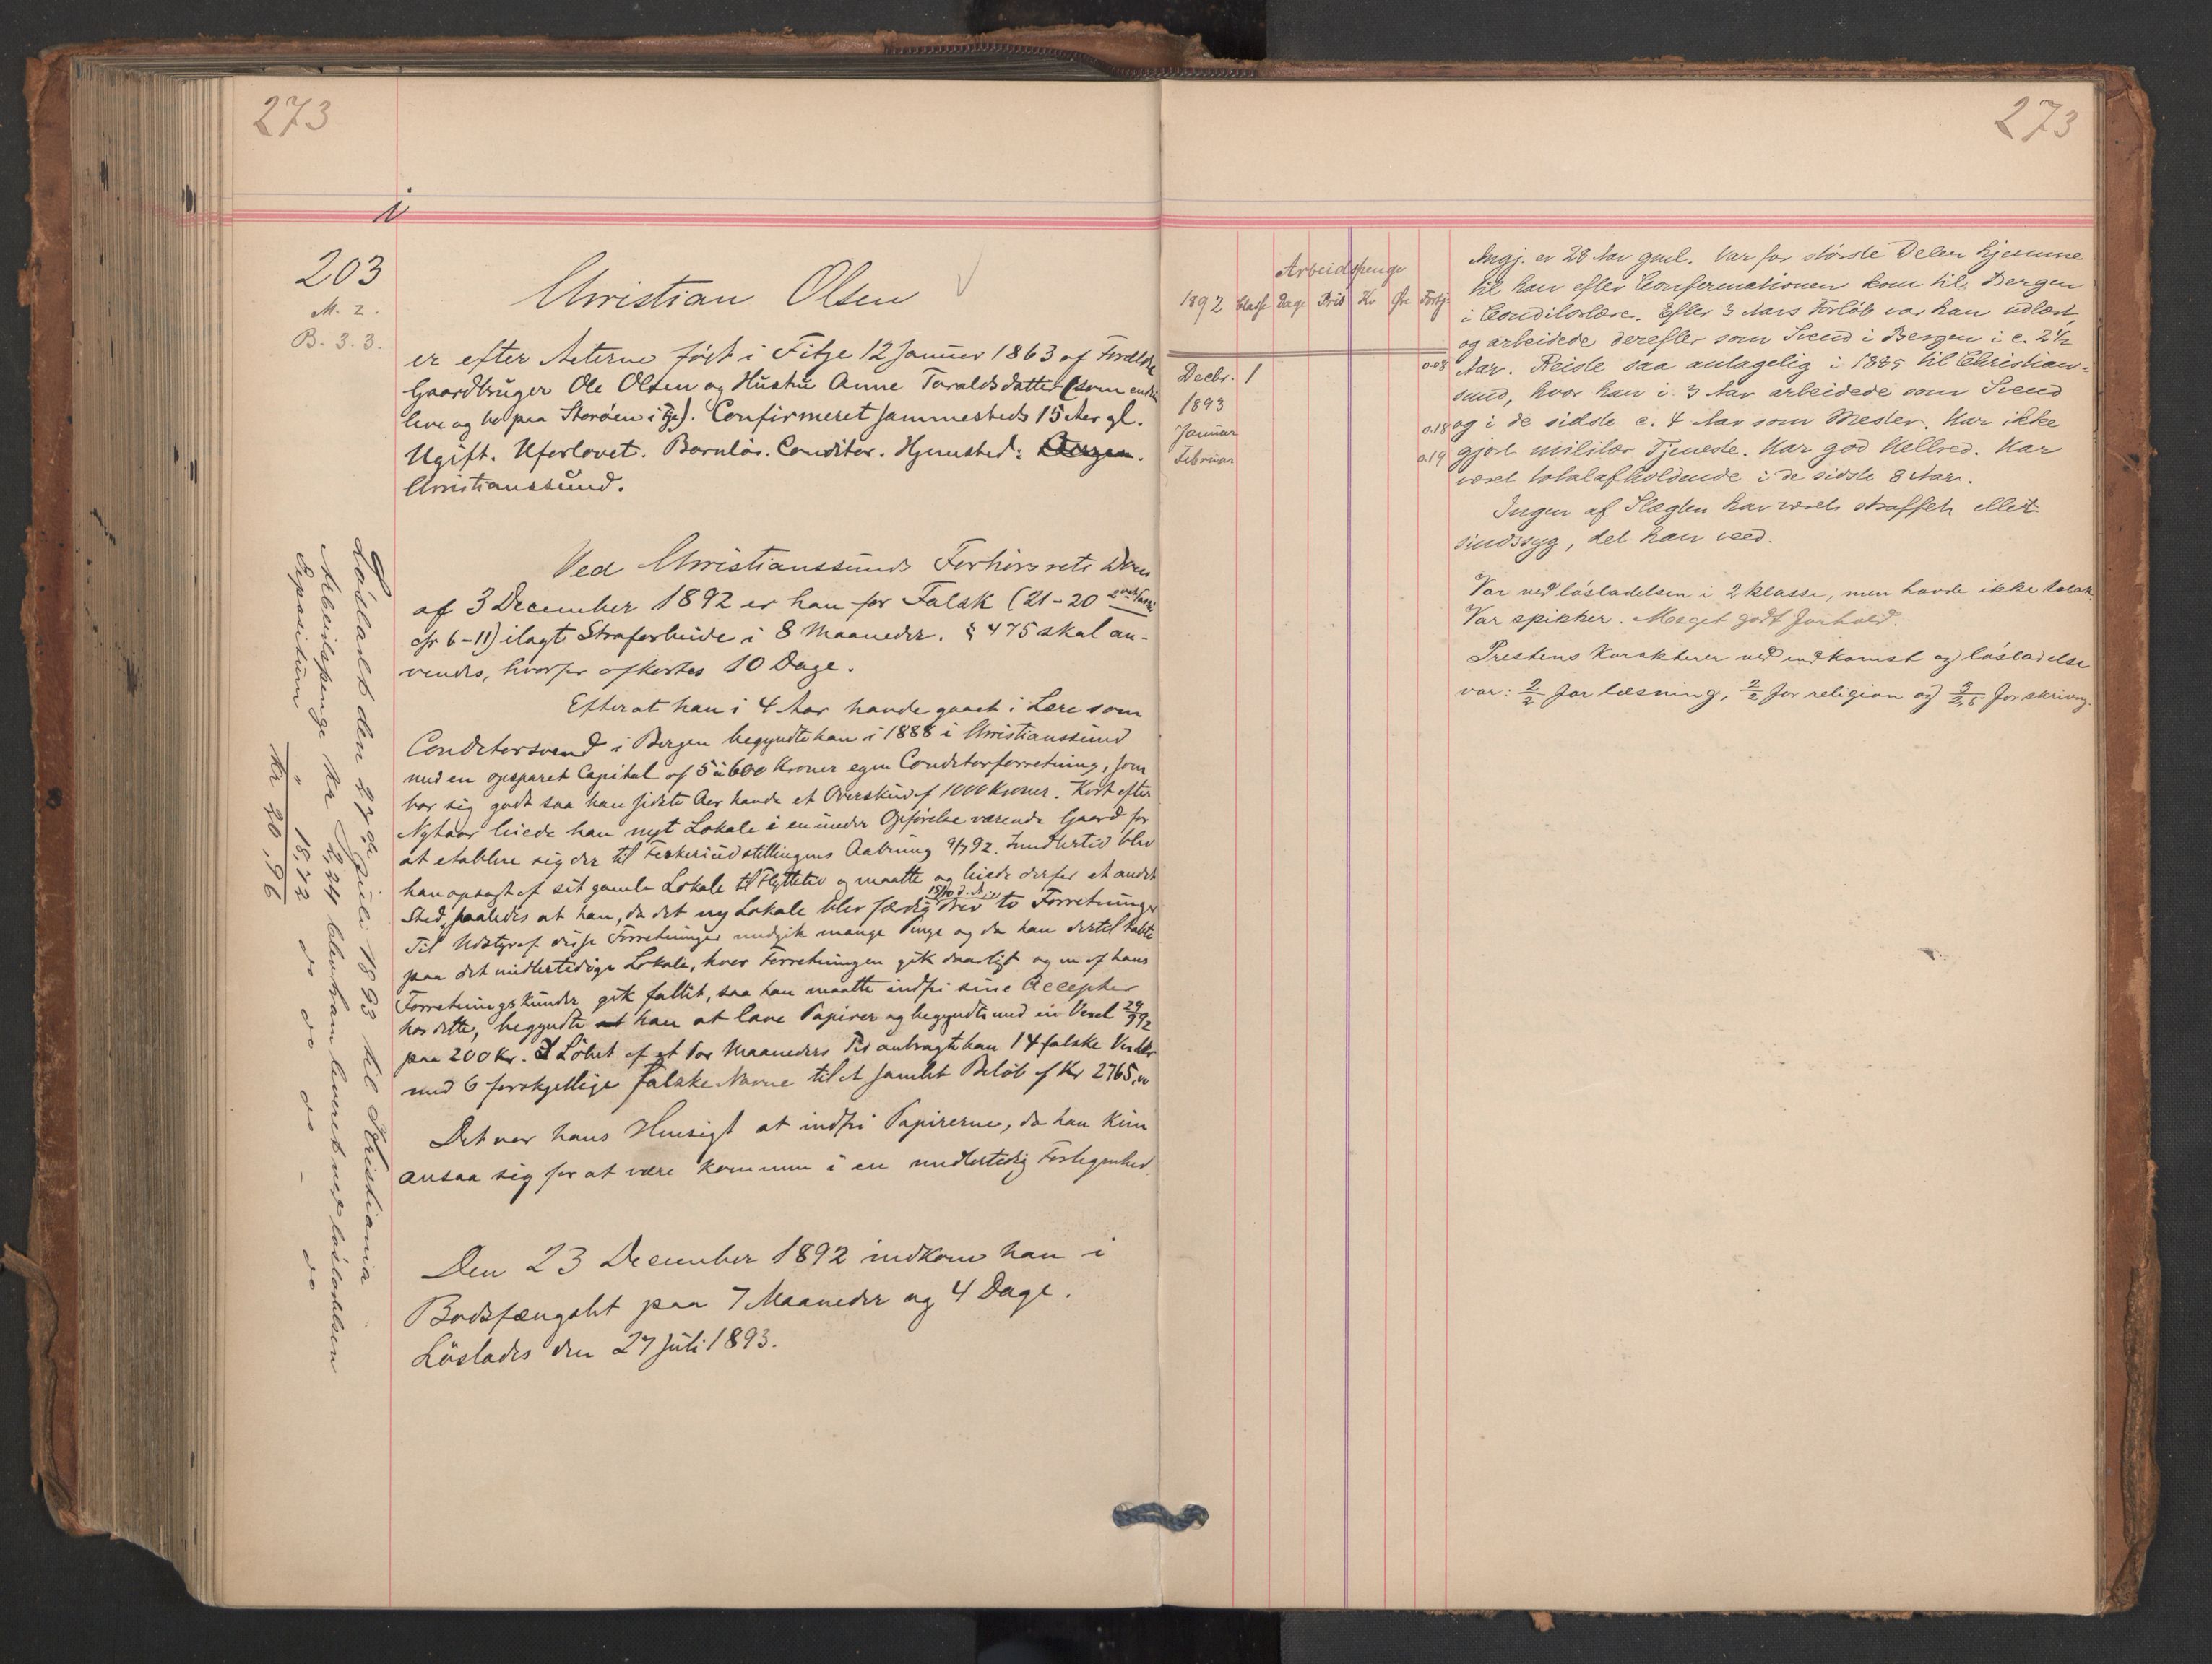 273
i
203
M. 2.
B. 3. 3.
Christian Olsen
er efter Aeterne født i Fitje 12 Januer 1863 af Forældre
Gaardbruger Ole Olsen og Hustru Anne Taralds datter (som endnu
leve og bo paa Storøen i Fitje). Confirmeret sammesteds 15 Aar gl.
Ugift. Uforlovet. Barnløs. Conditor. Hjemsted: Bergen.
Christianssund.
Ved Christianssunds Forhørsrets Dom
af 3 December 1892 er han for Falsk (21-20
cfr 6-11) ilagt Strafarbeide i 8 Maaneder. § 475 skal an-
vendes, hvorfor afkortes 10 Dage.
Efterat han i 4 Aar havde gaaet i Lære som
Conditorsvend i Bergen begyndte han i 1888 i Christianssund
med en opsparet Capital af 5 à 600 Kroner egen Conditorforretning, som
bar sig godt saa han sidste Aar havde et Overskud af 1000 Kroner. Kort efter
Nytaar leiede han nyt Lokale i en under Opførelse værende Gaard for
at etablere sig der til Fiskeriudstillingens Aabning 9/7 92. Imidlertid blev
han opsagt af sit gamle Lokale til Flyttetid og maatte og leiede derfor et andet
Sted, saaledes at han, da det ny Lokale blev færdig 15/10 d. A., drev to Forretninger
Til Udstyr af disse Forretninger medgik mange Penge og da han dertil tabte
paa det midlertidige Lokale, hvor Forretningen gik daarligt og en af hans
Forretningskunder gik fallit, saa han maatte indfri sine Accepter
hos dette, begyndte han at lave Papirer og begyndte med en Vexel 29/9 92
paa 200 Kr. I Løbet af et Par Maaneders Tid anbragte han 14 falske Vexler
med 6 forskjellige falske Navne til et samlet Beløb af Kr 2765,00
Det var hans Hensigt at indfri Papirerne, da han kun
ansaa sig for at være kommen i en midlertidig Forlegenhed.
Den 23 December 1892 indkom han i
Bodsfængslet paa 7 Maaneder og 4 Dage.
Løslades den 27 Juli 1893.
Løsladt den 27de Juli 1893 til Kristiania
Arbeidspenge Kr 2,24 blev ham leveret ved løsladelsen
Depositum " 18,72 do do do - do
Kr 20,96
273
Arbeidspenge
1892 Klasse Dage Pris Kr Øre Fortj.
Decbr. 1 0.08
1893
Januar 0.18
Februar 0.19
Angj. er 28 Aar gml. Var for største Delen hjemme
til han efter Confirmationen kom til Bergen
i Conditorlære. Efter 3 Aars Forløb var han udlært,
og arbeidede derefter som Svend i Bergen i c. 2 1/2
Aar. Reiste saa antagelig i 1885 til Christian-
sund, hvor han i 3 Aar arbeidede som Svend
og i de sidste c. 4 Aar som Mester. Har ikke
gjort militær Tjeneste. Har god Helbred. Har
været totalafholdende i de sidste 8 Aar.
Ingen af Slægten har været straffet eller
sindssyg, det han veed.
Var ved løsladelsen i 2 klasse, men havde ikke tobak.
Var spikker. Meget godt forhold.
Prestens Karakterer ved indkomst og løsladelse
var: 2/2 for læsning, 2/2 for religion og 3/2,5 for skrivng.